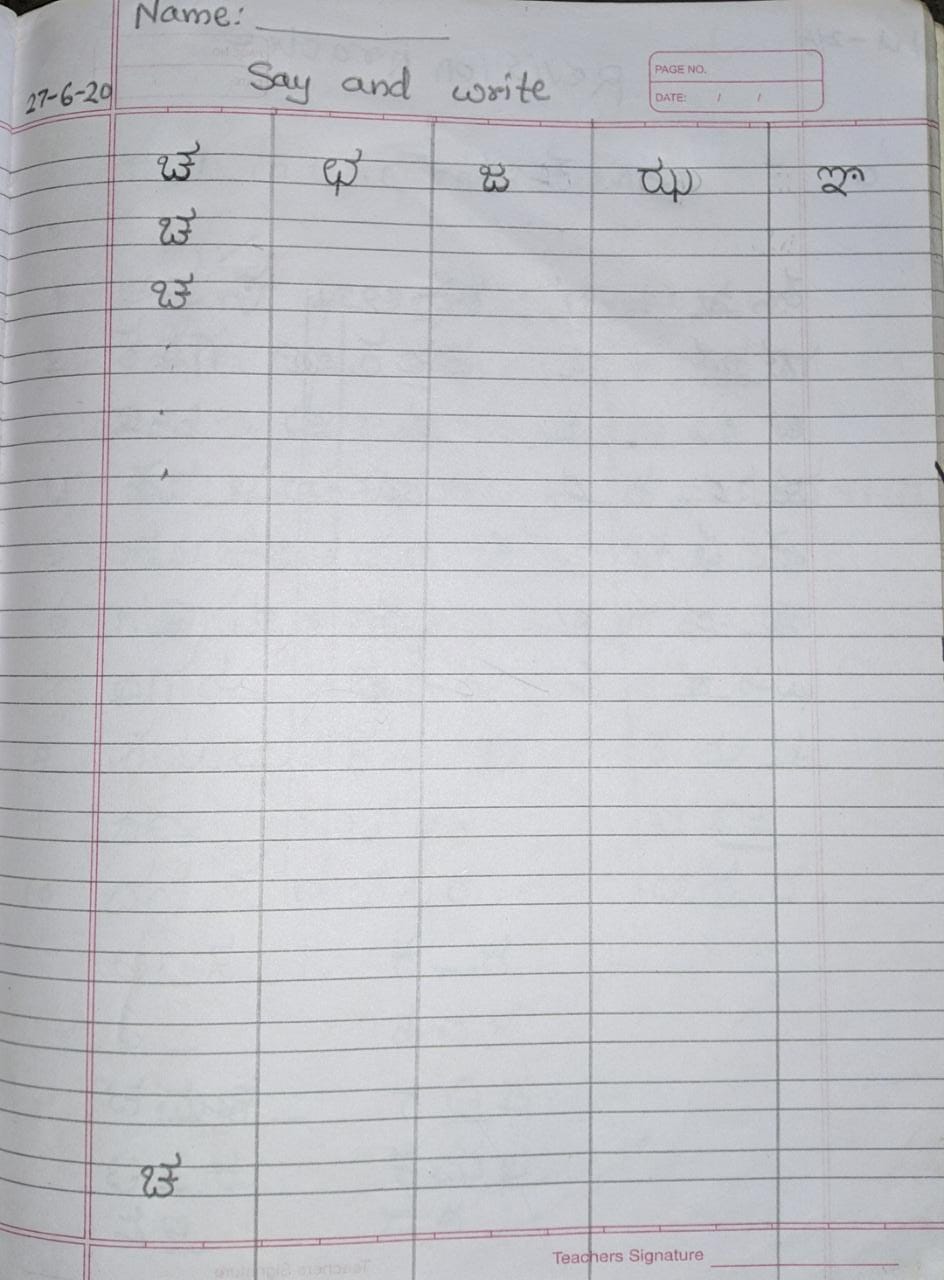 Name: ____________
27-6-20 Say and write
PAGE NO.
DATE: / /
ಚ ಛ ಜ ಝ ಞ
ಚ
ಚ
ಚ
Teachers Signature ____________